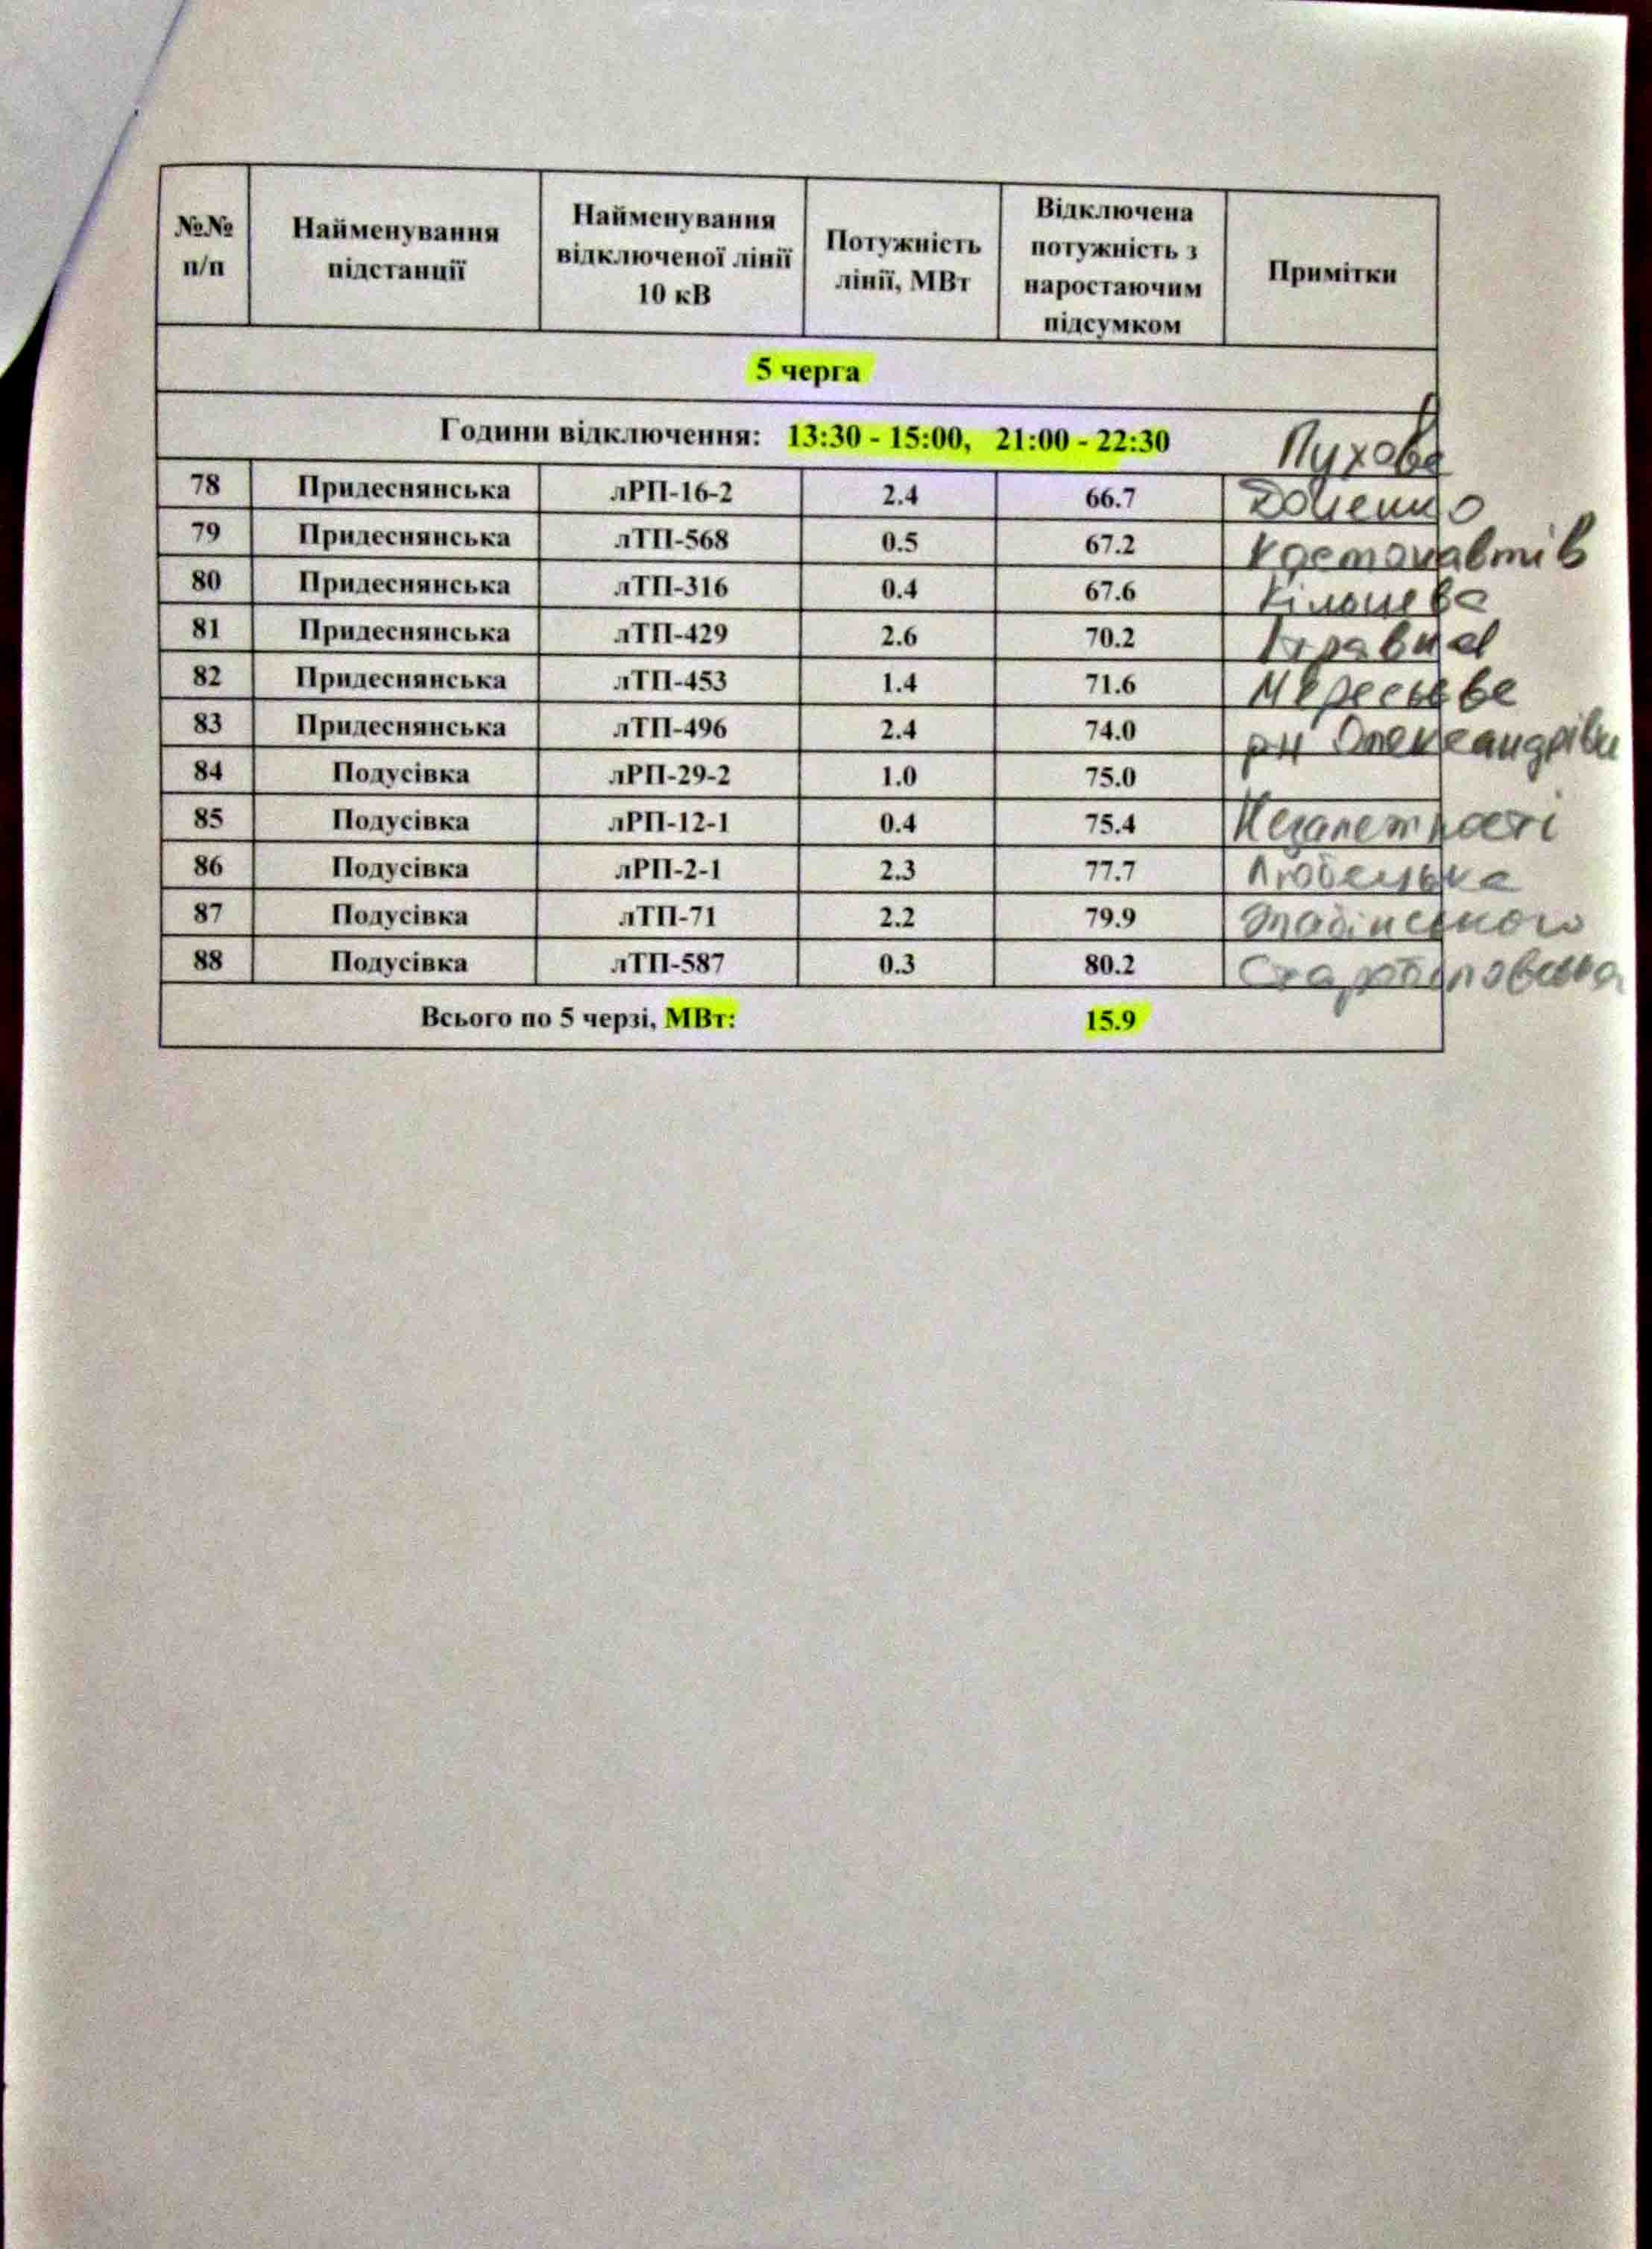 №№ п/п Найменування підстанції Найменування відключеної лінії 10 кВ Потужність лінії, МВт Відключена потужність з наростаючим підсумком Примітки
5 черга
Години відключення: 13:30 - 15:00, 21:00 - 22:30 Пухова
78 Придеснянська лРП-16-2 2.4 66.7 Доценко
79 Придеснянська лТП-568 0.5 67.2
80 Придеснянська лТП-316 0.4 67.6 Кільцева
81 Придеснянська лТП-429 2.6 70.2
82 Придеснянська лТП-453 1.4 71.6
83 Придеснянська лТП-496 2.4 74.0 рн Олександрівки
84 Подусівка лРП-29-2 1.0 75.0
85 Подусівка лРП-12-1 0.4 75.4 Незалежності
86 Подусівка лРП-2-1 2.3 77.7 Любецька
87 Подусівка лТП-71 2.2 79.9
88 Подусівка лТП-587 0.3 80.2
Всього по 5 черзі, МВт: 15.9